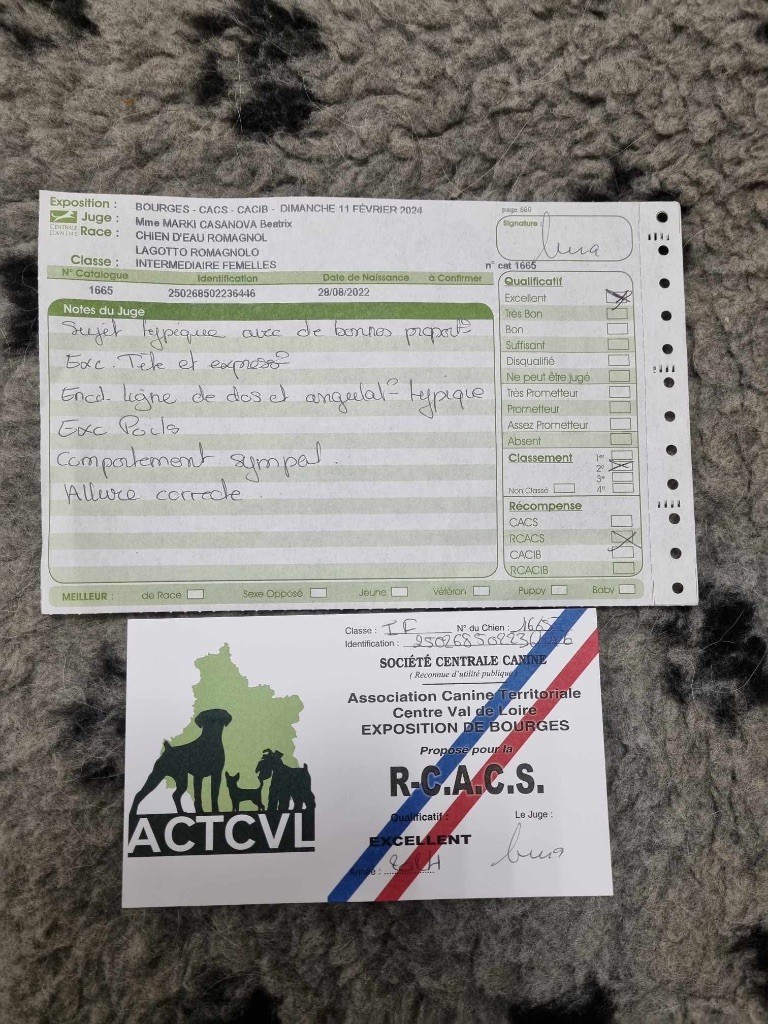 Exposition : BOURGES - CACS - CACIB - DIMANCHE 11 FÉVRIER 2024
page 660
Juge : Mme MARKI CASANOVA Beatrix
Signature :
Race : CHIEN D'EAU ROMAGNOL
LAGOTTO ROMAGNOLO
Classe : INTERMEDIAIRE FEMELLES
n° cat 1665
N° Catalogue Identification Date de Naissance à Confirmer
1665 250268502236446 28/08/2022
Notes du Juge
Sujet typique avec de bonnes proport°
Exc. Tête et express°
Encol. ligne de dos et angulat° typique
Exc Poils
Comportement sympat.
Allure correcte
Qualificatif
Excellent
Très Bon
Bon
Suffisant
Disqualifié
Ne peut être jugé
Très Prometteur
Prometteur
Assez Prometteur
Absent
Classement 1er
2e
3e
Non Classé 4e
Récompense
CACS
RCACS
CACIB
RCACIB
MEILLEUR : de Race Sexe Opposé Jeune Vétéran Puppy Baby
Classe : IF N° du Chien : 1665
Identification : 250268502236446
SOCIÉTÉ CENTRALE CANINE
( Reconnue d'utilité publique )
Association Canine Territoriale
Centre Val de Loire
EXPOSITION DE BOURGES
Proposé pour la
R-C.A.C.S.
Qualificatif : Le Juge :
EXCELLENT
Année :
ACTCVL